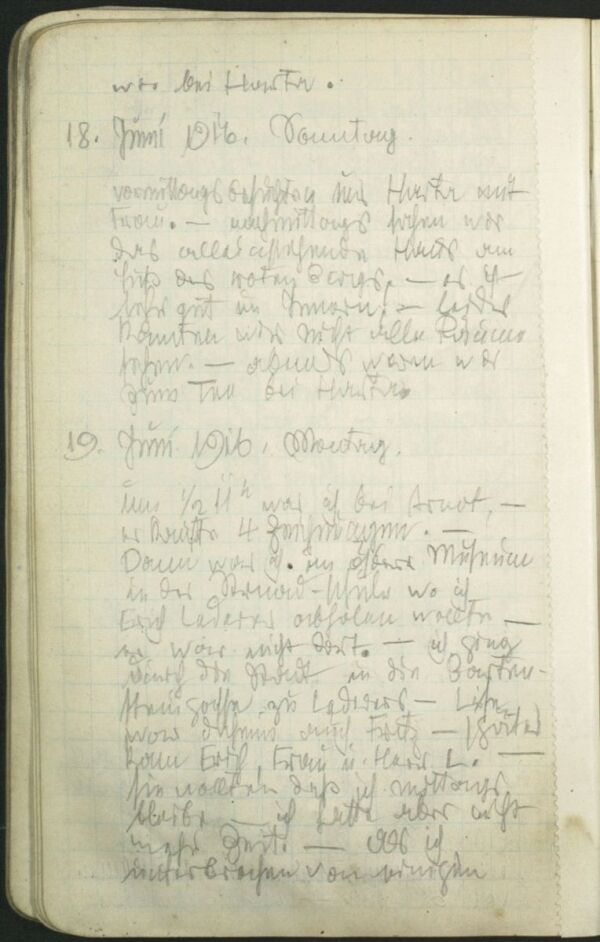 war bei Harta.
18. Juni 1916. Sonntag.
vormittags besuchten uns Harta mit
Frau. — nachmittags sahen wir
das alleinstehende Haus am
Fuß des roten Bergs. — es ist
sehr gut im Innern. — leider
konnten wir nicht alle Räume
sehen. — abends waren wir
zum Tee bei Harta.
19. Juni 1916. Montag.
um ½ 11h war ich bei Arnot, —
er kaufte 4 Zeichnungen. —
Dann war ich im Museum
in der schule wo ich
Erich Lederer abholen wollte —
er war nicht dort. — ich ging
durch die Stadt in die Barten-
steingasse zu Lederers —
war daheim auch Fritz — später
kam Erich, Frau u. Herr L. —
sie wollten daß ich mittags
bleibe — ich hatte aber nicht
mehr Zeit. — ich
unterbrochen von einigen